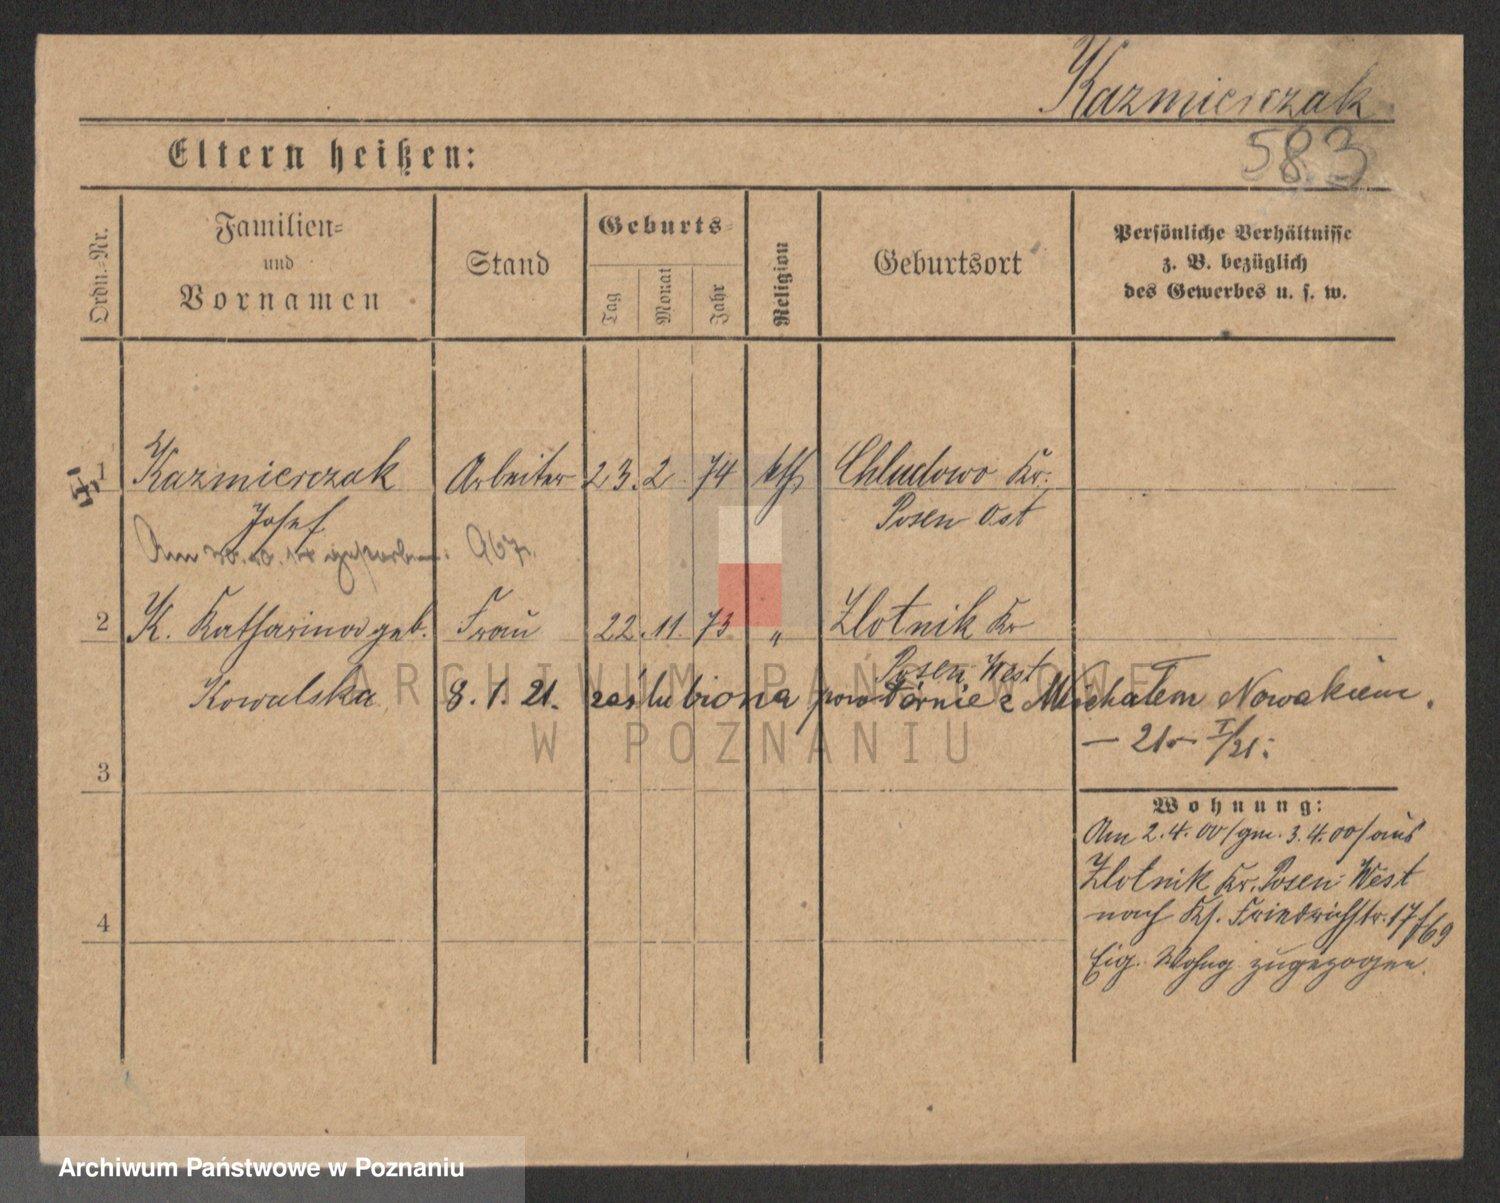 Kazmierczak
583
Eltern heißen:
Ordn.-Nr.
Familien-
und
Vornamen
Stand
Geburts-
Tag
Monat
Jahr
Religion
Geburtsort
Persönliche Verhältnisse
z. B. bezüglich
des Gewerbes u. s. w.
1 Kazmierczak Arbeiter 23. 2. 74 kth. Chludowo Kr.
Josef Posen Ost
Am gestorben.
2 K. Katharina geb. Frau 22. 11. 73 " Zlotnik Kr
Posen West
Kowalska 8. 1. 21. zaślubiona powtórnie z Michałem Nowakiem.
21 I/21.
3
Wohnung:
Am 2. 4. 00 /gm. 3. 4. 00/ aus
Zlotnik Kr. Posen West
nach Friedrichstr. 17
4
Eig. Wohng zugezogen.
ARCHIWUM PAŃSTWOWE
W POZNANIU
Archiwum Państwowe w Poznaniu